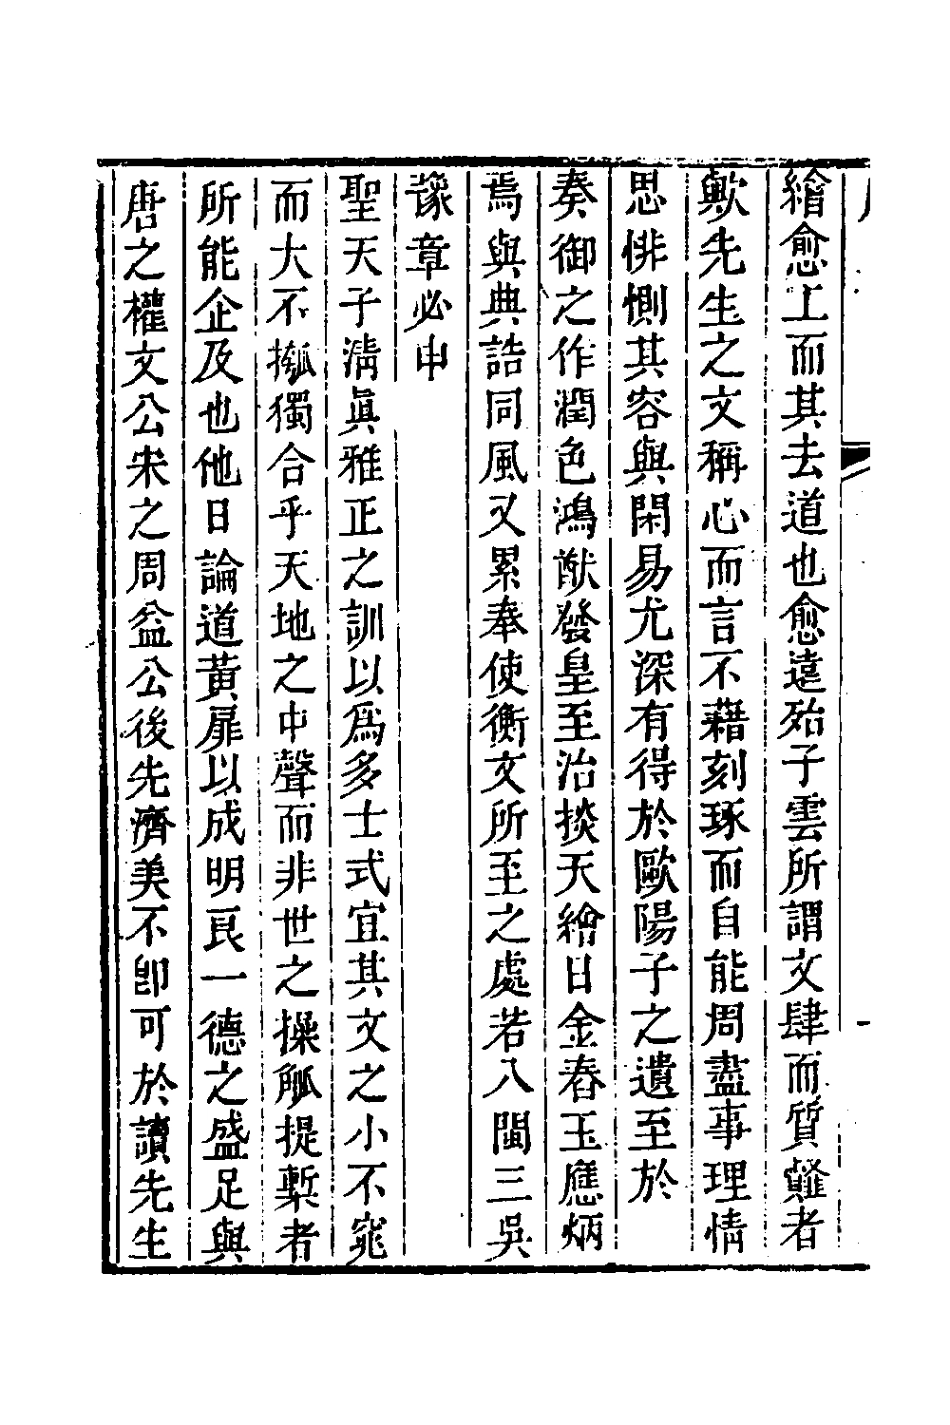 繪愈工而其去道也愈遠殆子雲所謂文肆而質䵳者
歟先生之文稱心而言不藉刻琢而自能周盡事理情
思悱惻其容與閑易尤深有得於歐陽子之遺至於
奏御之作潤色鴻猷發皇至治掞天繪日金舂玉應炳
焉與典誥同風又累奉使衡文所至之處若八閩三吳
豫章必申
聖天子淸眞雅正之訓以爲多士式宜其文之小不窕
而大不摦獨合乎天地之中聲而非世之操觚提槧者
所能企及也他日論道黃扉以成明良一德之盛足與
唐之權文公宋之周益公後先濟美不卽可於讀先生